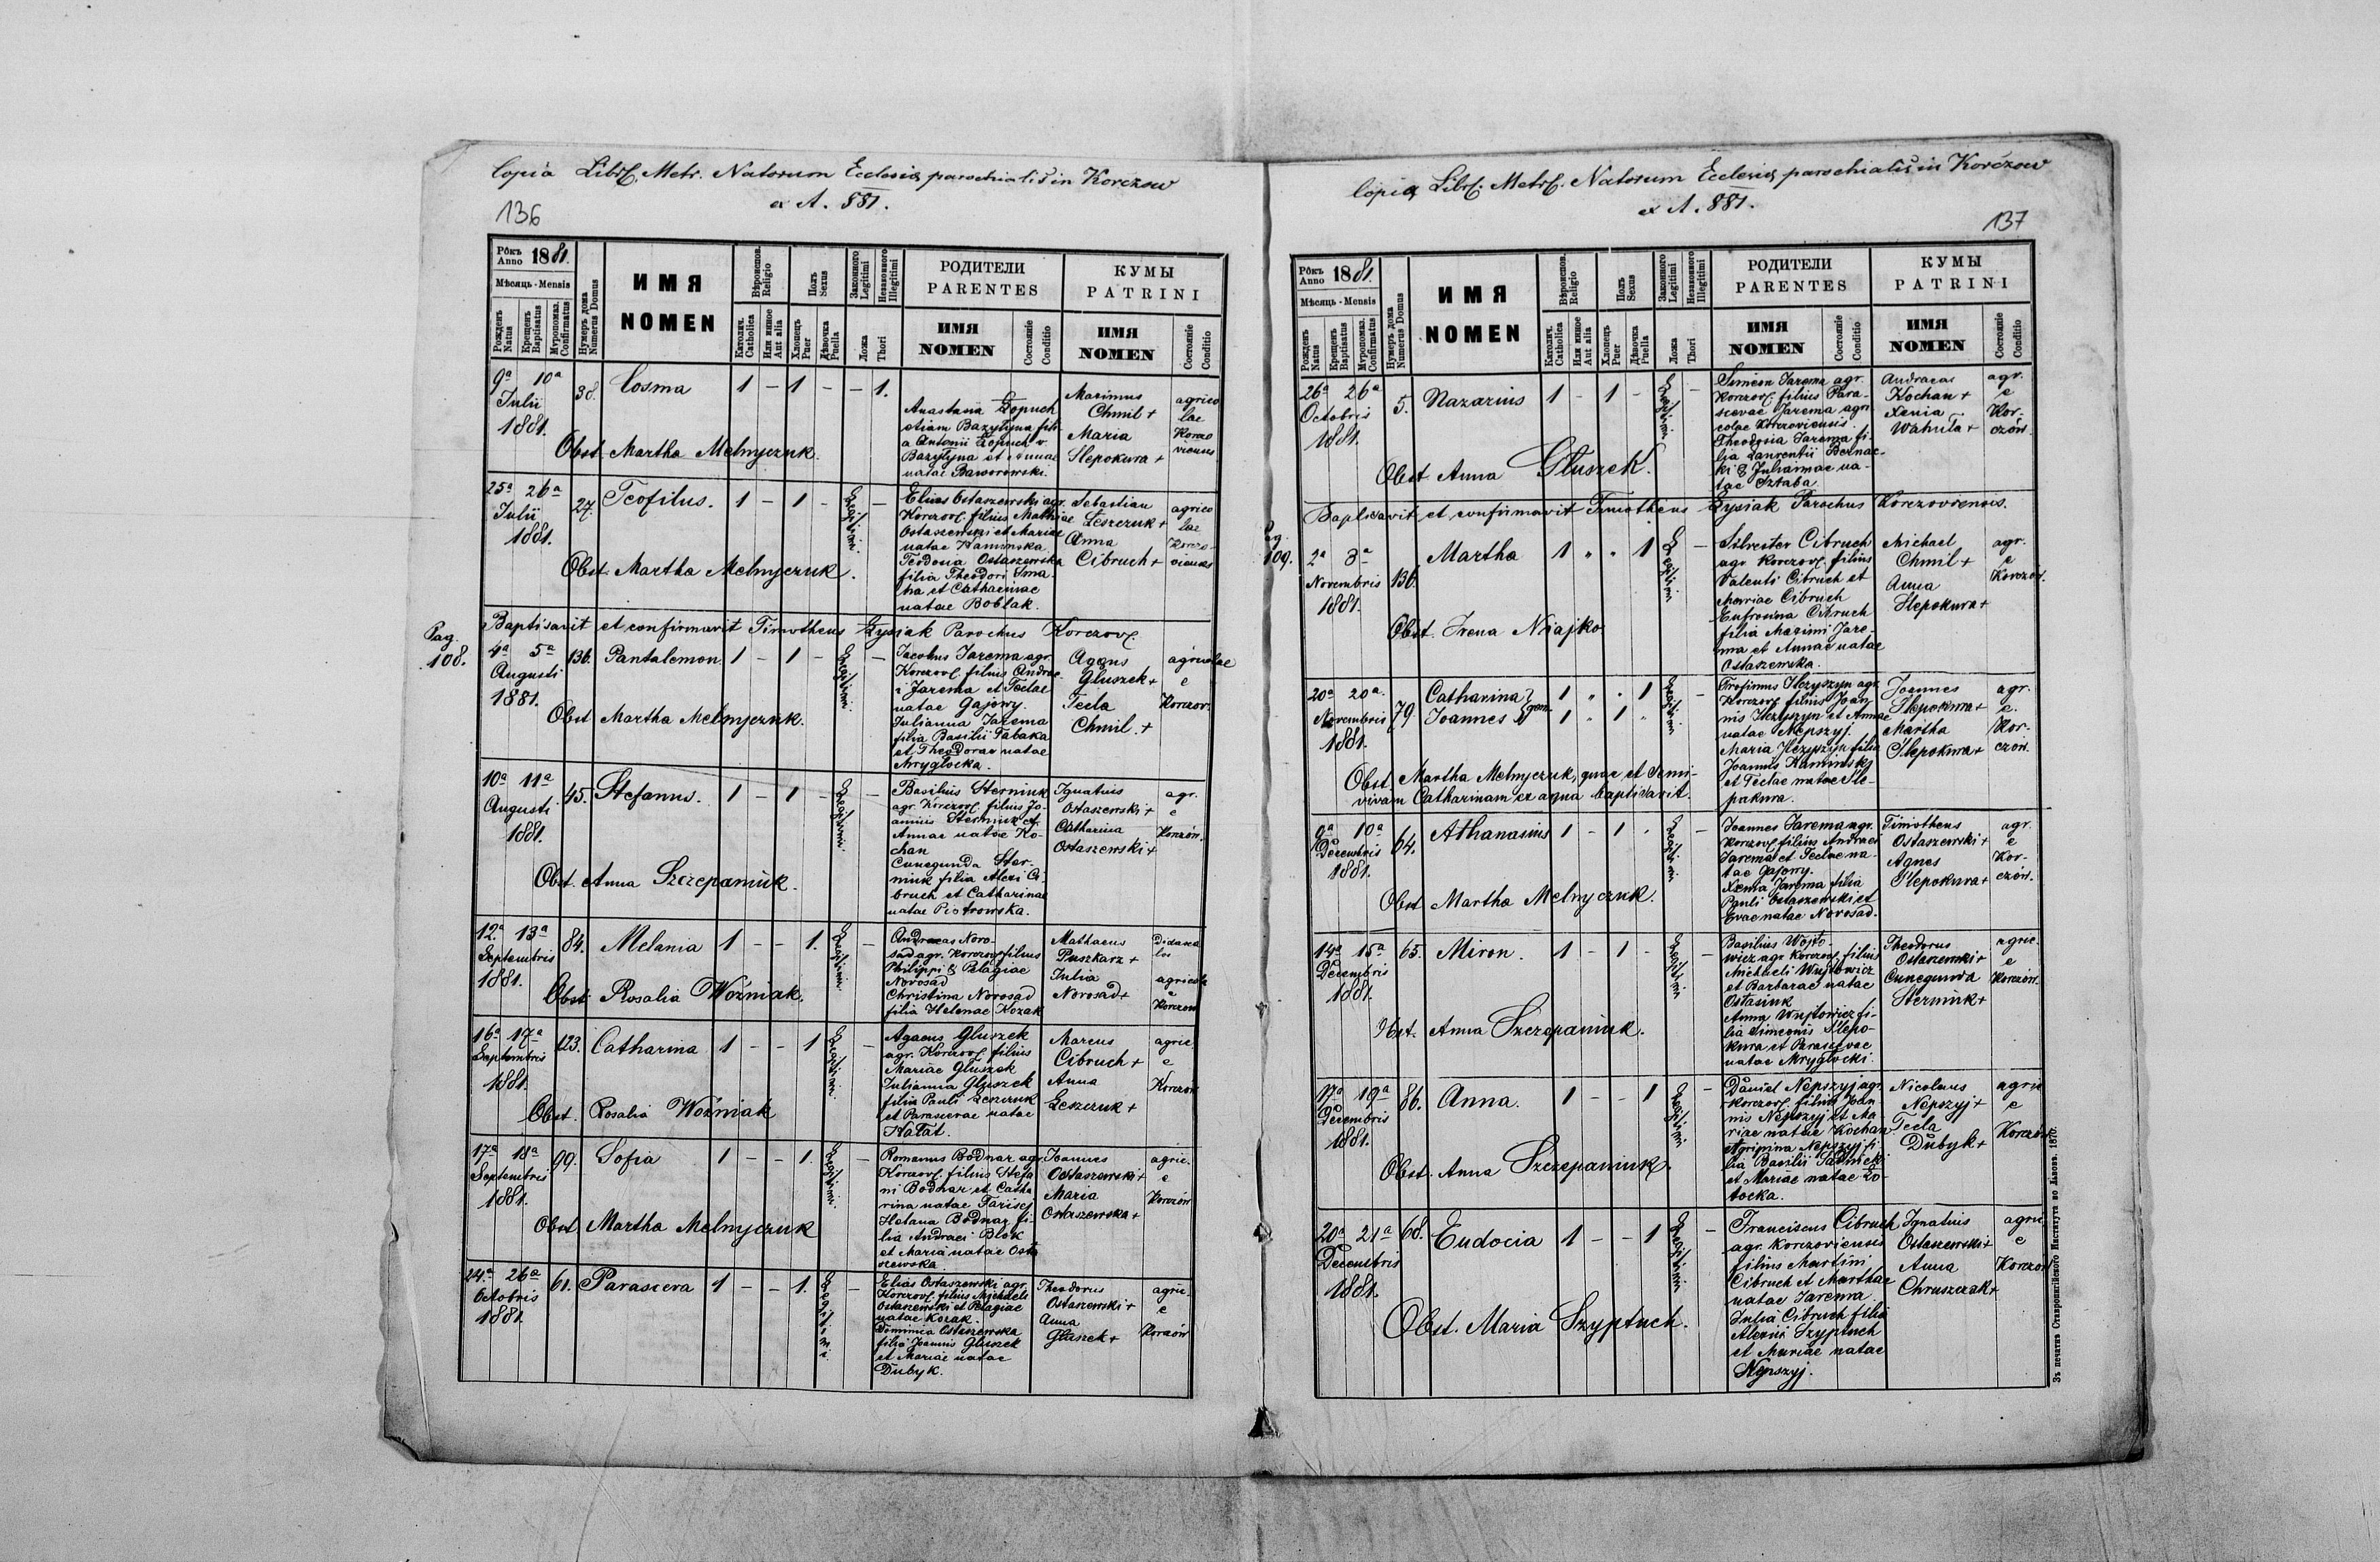 Copia Libr. Metr. Natorum Ecclesiæ parochialis in Korczow
ex A. 881.
136
Рôкъ Anno 1881.
Мѣсяць - Mensis
Рожденъ Natus
Крещенъ Baptisatus
Муропомаз. Confirmatus
Нумеръ дома Numerus Domus
ИМЯ
NOMEN
Вѣроиспов. Religio
Католич. Catholica
Или иное Aut alia
Полъ Sexus
Хлопець Puer
Дѣвочка Puella
Законного Legitimi
Незаконного Illegitimi
Ложа
Thori
РОДИТЕЛИ
PARENTES
ИМЯ
NOMEN
Состояніе
Conditio
КУМЫ
PATRINI
ИМЯ
NOMEN
Состояніе
Conditio
9ª 10ª
Julii
1881.
38.
Cosma
1 – 1 – – 1.
Anastasia Łopuch
etiam Bazylyna fili-
a Antonii Łopuch v.
Bazylyna et Annae
natae Baworowski.
Maximus
Chmil +
Maria
Slepokura +
agrico
lae
Korczo
vienses
Obst. Martha Melnyczuk.
25ª 26ª
Julii
1881.
27.
Teofilus.
1 – 1 – Legitimi. –
Elias Ostaszewski agr.
Korczov. filius Mathiae
Ostaszewski et Mariae
natae Kaminska
Teodosia Ostaszewska
filia Theodori Sma-
ha et Catharinae
natae Boblak.
Sebastian
Leszczuk +
Anna
Cibruch +
agrico
lae
Korczo-
vienses
Obst. Martha Melnyczuk.
Baptisavit et confirmavit Timotheus Łysiak Parochus Korczov.
Pag.
108.
4ª 5ª
Augusti
1881.
136.
Pantalemon
1 – 1 – Legitimi. –
Jacobus Jarema agr.
Korczov. filius Andrae
i Jarema et Teclae
natae Gajowy.
Julianna Jarema
filia Basilii Tabaka
et Theodorae natae
Mryglocka.
Ageus
Gluszek +
Tecla
Chmil. +
agricolae
e
Korczov.
Obst. Martha Melnyczuk.
10ª 11ª
Augusti
1881.
45.
Stefanus.
1 – 1 – Legitimi. –
Basilius Sterniuk
agr. Korczov. filius Jo-
annis Sterniuk et
Annae natae Ko-
chan
Cunegunda Ster-
niuk filia Alexi Ci-
bruch et Catharinae
natae Piotrowska.
Ignatius
Ostaszewski +
Catharina
Ostaszewski +
agr.
e
Korczów.
Obst. Anna Szczepaniuk.
12ª 13ª
Septembris
1881.
84.
Melania
1 – – 1. Legitimi. –
Andraeas Novo-
sad agr. Korczov. filius
Philippi & Pelagiae
Novosad
Christina Novosad
filia Helenae Kozak
Mathaeus
Puszkarz +
Julia
Novosad +
Didasca
los
agricola
e
Korczow
Obst. Rosalia Woźniak.
16ª 17ª
Septembris
1881.
123.
Catharina
1 – – 1 Legitimi. –
Agaeus Gluszek
agr. Korczov. filius
Mariae Gluszek
Julianna Gluszek
filia Pauli Leszczuk
et Parascevae natae
Hałat.
Marcus
Cibruch +
Anna
Leszczuk +
agric.
e
Korczow
Obst. Rosalia Woźniak
17ª 18ª
Septembris
1881.
99.
Sofia
1 – – 1. Legitimi. –
Romanus Bodnar agr.
Korczov. filius Stefa
ni Bodnar et Catha
rina natae Farisej
Helana Bodnar fi-
lia Andraei Blok
et Maria natae Osta
szewska.
Joannes
Ostaszewski +
Maria
Ostaszewska +
agric.
e
Korczów
Obst. Martha Melnyczuk
24ª 26ª
Octobris
1881.
61.
Parasceva
1 – – 1. Legitimi. –
Elias Ostaszewski agr.
Korczov. filius Michaeli
Ostaszewski et Pelagiae
natae Kozak.
Dominica Ostaszewska
filia Joannis Gluszek
et Mariae natae
Dubyk.
Theodorus
Ostaszewski +
Anna
Gluszek +
agric.
e
Korczów
Copia Libr. Metr. Natorum Ecclesiæ parochialis in Korczow
ex A. 881.
137
Рôкъ Anno 1881.
Мѣсяць - Mensis
Рожденъ Natus
Крещенъ Baptisatus
Муропомаз. Confirmatus
Нумеръ дома Numerus Domus
ИМЯ
NOMEN
Вѣроиспов. Religio
Католич. Catholica
Или иное Aut alia
Полъ Sexus
Хлопець Puer
Дѣвочка Puella
Законного Legitimi
Незаконного Illegitimi
Ложа
Thori
РОДИТЕЛИ
PARENTES
ИМЯ
NOMEN
Состояніе
Conditio
КУМЫ
PATRINI
ИМЯ
NOMEN
Состояніе
Conditio
26ª 26ª
Octobris
1881.
5.
Nazarius
1 – 1 – Legitimi –
Simeon Jarema agr.
Korczov. filius Para-
scevae Jarema agri
colae Korczoviensis.
Theodosia Jarema fi-
lia Laurentii Bernac-
ki & Juliannae na-
tae Sztaba.
Andraeas
Kochan +
Xenia
Wahuła +
agr.
e
Kor-
czów.
Obst. Anna Gluszek.
Baptisavit et confirmavit Timotheus Łysiak Parochus Korczoviensis.
109.
2ª 3ª
Novembris
1881.
136.
Martha
1 " " 1 Legitimi –
Silvester Cibruch
agr. Korczov. filius
Valenti Cibruch et
Mariae Cibruch
Eufrosina Cibruch
filia Maximi Jare-
ma et Annae natae
Ostaszewska.
Michael
Chmil +
Anna
Slepokura +
agr.
e
Korczów.
Obst. Irena Niajko
20ª 20ª.
Novembris
1881.
79.
Catharina } gem.
Joannes
1 " " 1
1 " 1 "
Legitimi –
Trofimus Ilczyszyn agr.
Korczov. filius Joan-
nis Ilczyszyn et Annae
natae Nepszyj.
Maria Ilczyszyn filia
Joannis Kaminski
et Teclae natae Sle-
pokura.
Joannes
Slepokura +
Martha
Slepokura +
agr.
e.
Kor-
czow.
Obst. Martha Melnyczuk, quae et semi-
vivam Catharinam ex aqua baptisavit.
9ª 10ª
Decembris
1881.
64.
Athanasius
1 – 1 – Legitimi –
Joannes Jarema agr.
Korczov. filius Andraei
Jarema et Teclae na-
tae Gajowy.
Xenia Jarema filia
Pauli Ostaszewski et
Evae natae Novosad.
Timotheus
Ostaszewski +
Agnes
Slepokura +
agr.
e
Kor-
czów.
Obst. Martha Melnyczuk.
14ª 15ª
Decembris
1881.
65.
Miron.
1 – 1 – Legitimi –
Basilius Wojto-
wicz agr. Korczov. filius
Michaeli Wujtowicz
et Barbarae natae
Ostasiuk
Anna Wujtowicz fi-
lia Simeonis Slepo-
kura et Parascevae
natae Mryglocki.
Theodorus
Ostaszewski +
Cunegunda
Sterniuk +
agric.
e
Korczów.
Obst. Anna Szczepaniuk.
17ª 19ª
Decembris
1881.
86.
Anna.
1 – – 1 Legitimi –
Daniel Nepszyj agr.
Korczov. filius Joan-
nis Nepszyj et Ma-
riae natae Kochan
Agripina Nepszyj fi-
lia Basilii Sadnicki
et Mariae natae Zo-
tocka.
Nicolaus
Nepszyj +
Tecla
Dubyk +
agric
e
Korczów
Obst. Anna Szczepaniuk.
20ª 21ª
Decembris
1881.
68.
Eudocia
1 – – 1 Legitimi –
Franciscus Cibruch
agr. Korczoviensis
filius Martini
Cibruch et Marthae
natae Jarema.
Julia Cibruch filia
Alexii Szyptuch
et Mariae natae
Nepszyj.
Ignatius
Ostaszewski +
Anna
Chruszczak +
agric
e
Korczow
Obst. Maria Szyptuch.
Зъ печатнѣ Ставропигійского Института во Львовѣ. 1870.